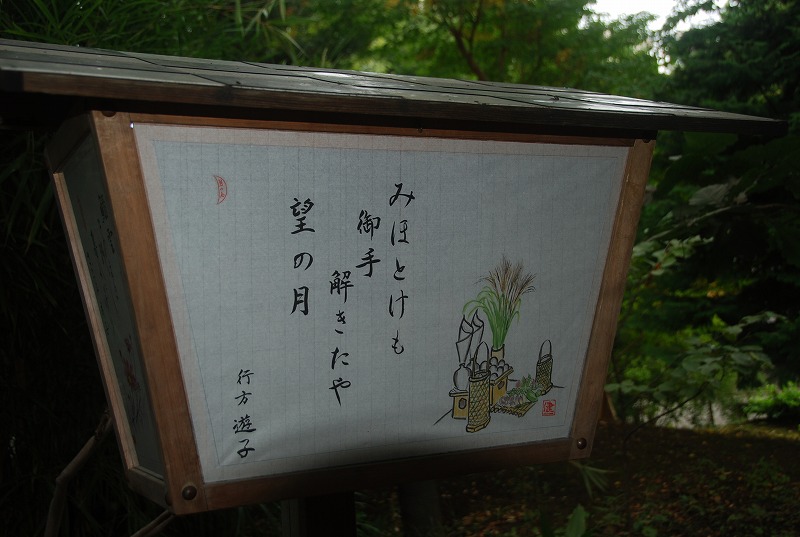 みほとけも
御手
解きたや
望の月
行方遊子